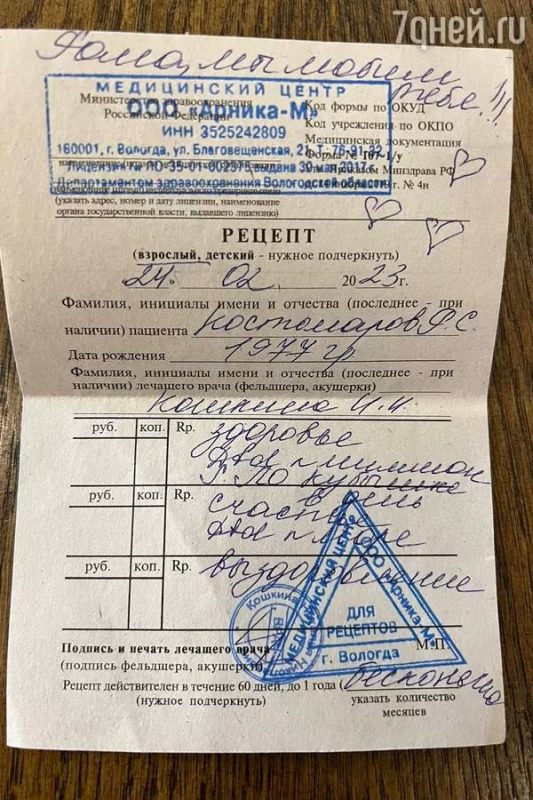 7дней.ru
Рома, мы любим
тебя!!!
МЕДИЦИНСКИЙ ЦЕНТР
Министерство здравоохранения
Российской Федерации
ООО «Арника-М»
Код формы по ОКУД
Код учреждения по ОКПО
ИНН 3525242809
Медицинская документация
160001, г. Вологда, ул. Благовещенская, 21, Т. 76-91-32
Форма № 107-1/у
Лицензия № ЛО-35-01-002371 выдана 30 мая 2017 г.
Приказом Минздрава РФ
Департаментом здравоохранения Вологодской области
2019 г. № 4н
(указать адрес, номер и дату лицензии, наименование
органа государственной власти, выдавшего лицензию)
РЕЦЕПТ
(взрослый, детский - нужное подчеркнуть)
«24» 02 2023г.
Фамилия, инициалы имени и отчества (последнее - при
наличии) пациента Костомаров Р.С.
Дата рождения 1977 гр
Фамилия, инициалы имени и отчества (последнее - при
наличии) лечащего врача (фельдшера, акушерки)
Кошкина И.И.
руб. коп. Rp. здоровье
Dtd n миллион
S. По
в день
руб. коп. Rp. счастье
Dtd n море
руб. коп. Rp. выздоровление
МЕДИЦИНСКИЙ ЦЕНТР
ООО «Арника-М»
ДЛЯ
РЕЦЕПТОВ
г. Вологда
Кошкина
ВРАЧ
Подпись и печать лечащего врача М.П.
(подпись фельдшера, акушерки)
Рецепт действителен в течение 60 дней, до 1 года (бесконечно
(нужное подчеркнуть) указать количество
месяцев